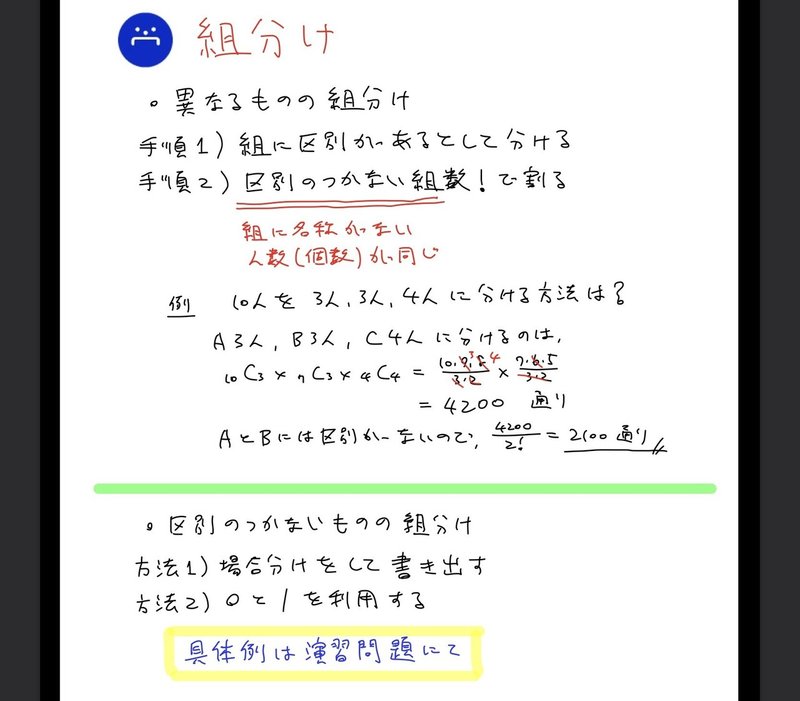 組分け
• 異なるものの組分け
手順1) 組に区別があるとして分ける
手順2) 区別のつかない組数!で割る
組に名称がない
人数(個数)が同じ
例 10人を 3人, 3人, 4人に分ける方法は?
A3人, B3人, C4人に分けるのは,
₁₀C₃ × ₇C₃ × ₄C₄ = 10·9·8/3·2 × 7·6·5/3·2
= 4200 通り
AとBには区別がないので, 4200/2! = 2100通り
• 区別のつかないものの組分け
方法1) 場合分けをして書き出す
方法2) 0と1を利用する
具体例は演習問題にて